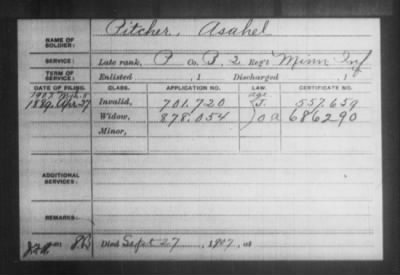 NAME OF SOLDIER: Pitcher, Asahel
SERVICE: Late rank, P Co. B, 2 Reg't Minn Inf
TERM OF SERVICE: Enlisted , 1 Discharged , 1
DATE OF FILING. CLASS. APPLICATION NO. LAW. CERTIFICATE NO.
1907 Mch 8 age
1889 Apr 27 Invalid, 701.720 J. 557.659
Widow, 878.054 O a 686290
Minor,
ADDITIONAL SERVICES:
REMARKS:
Died Sept 27, 1907, at